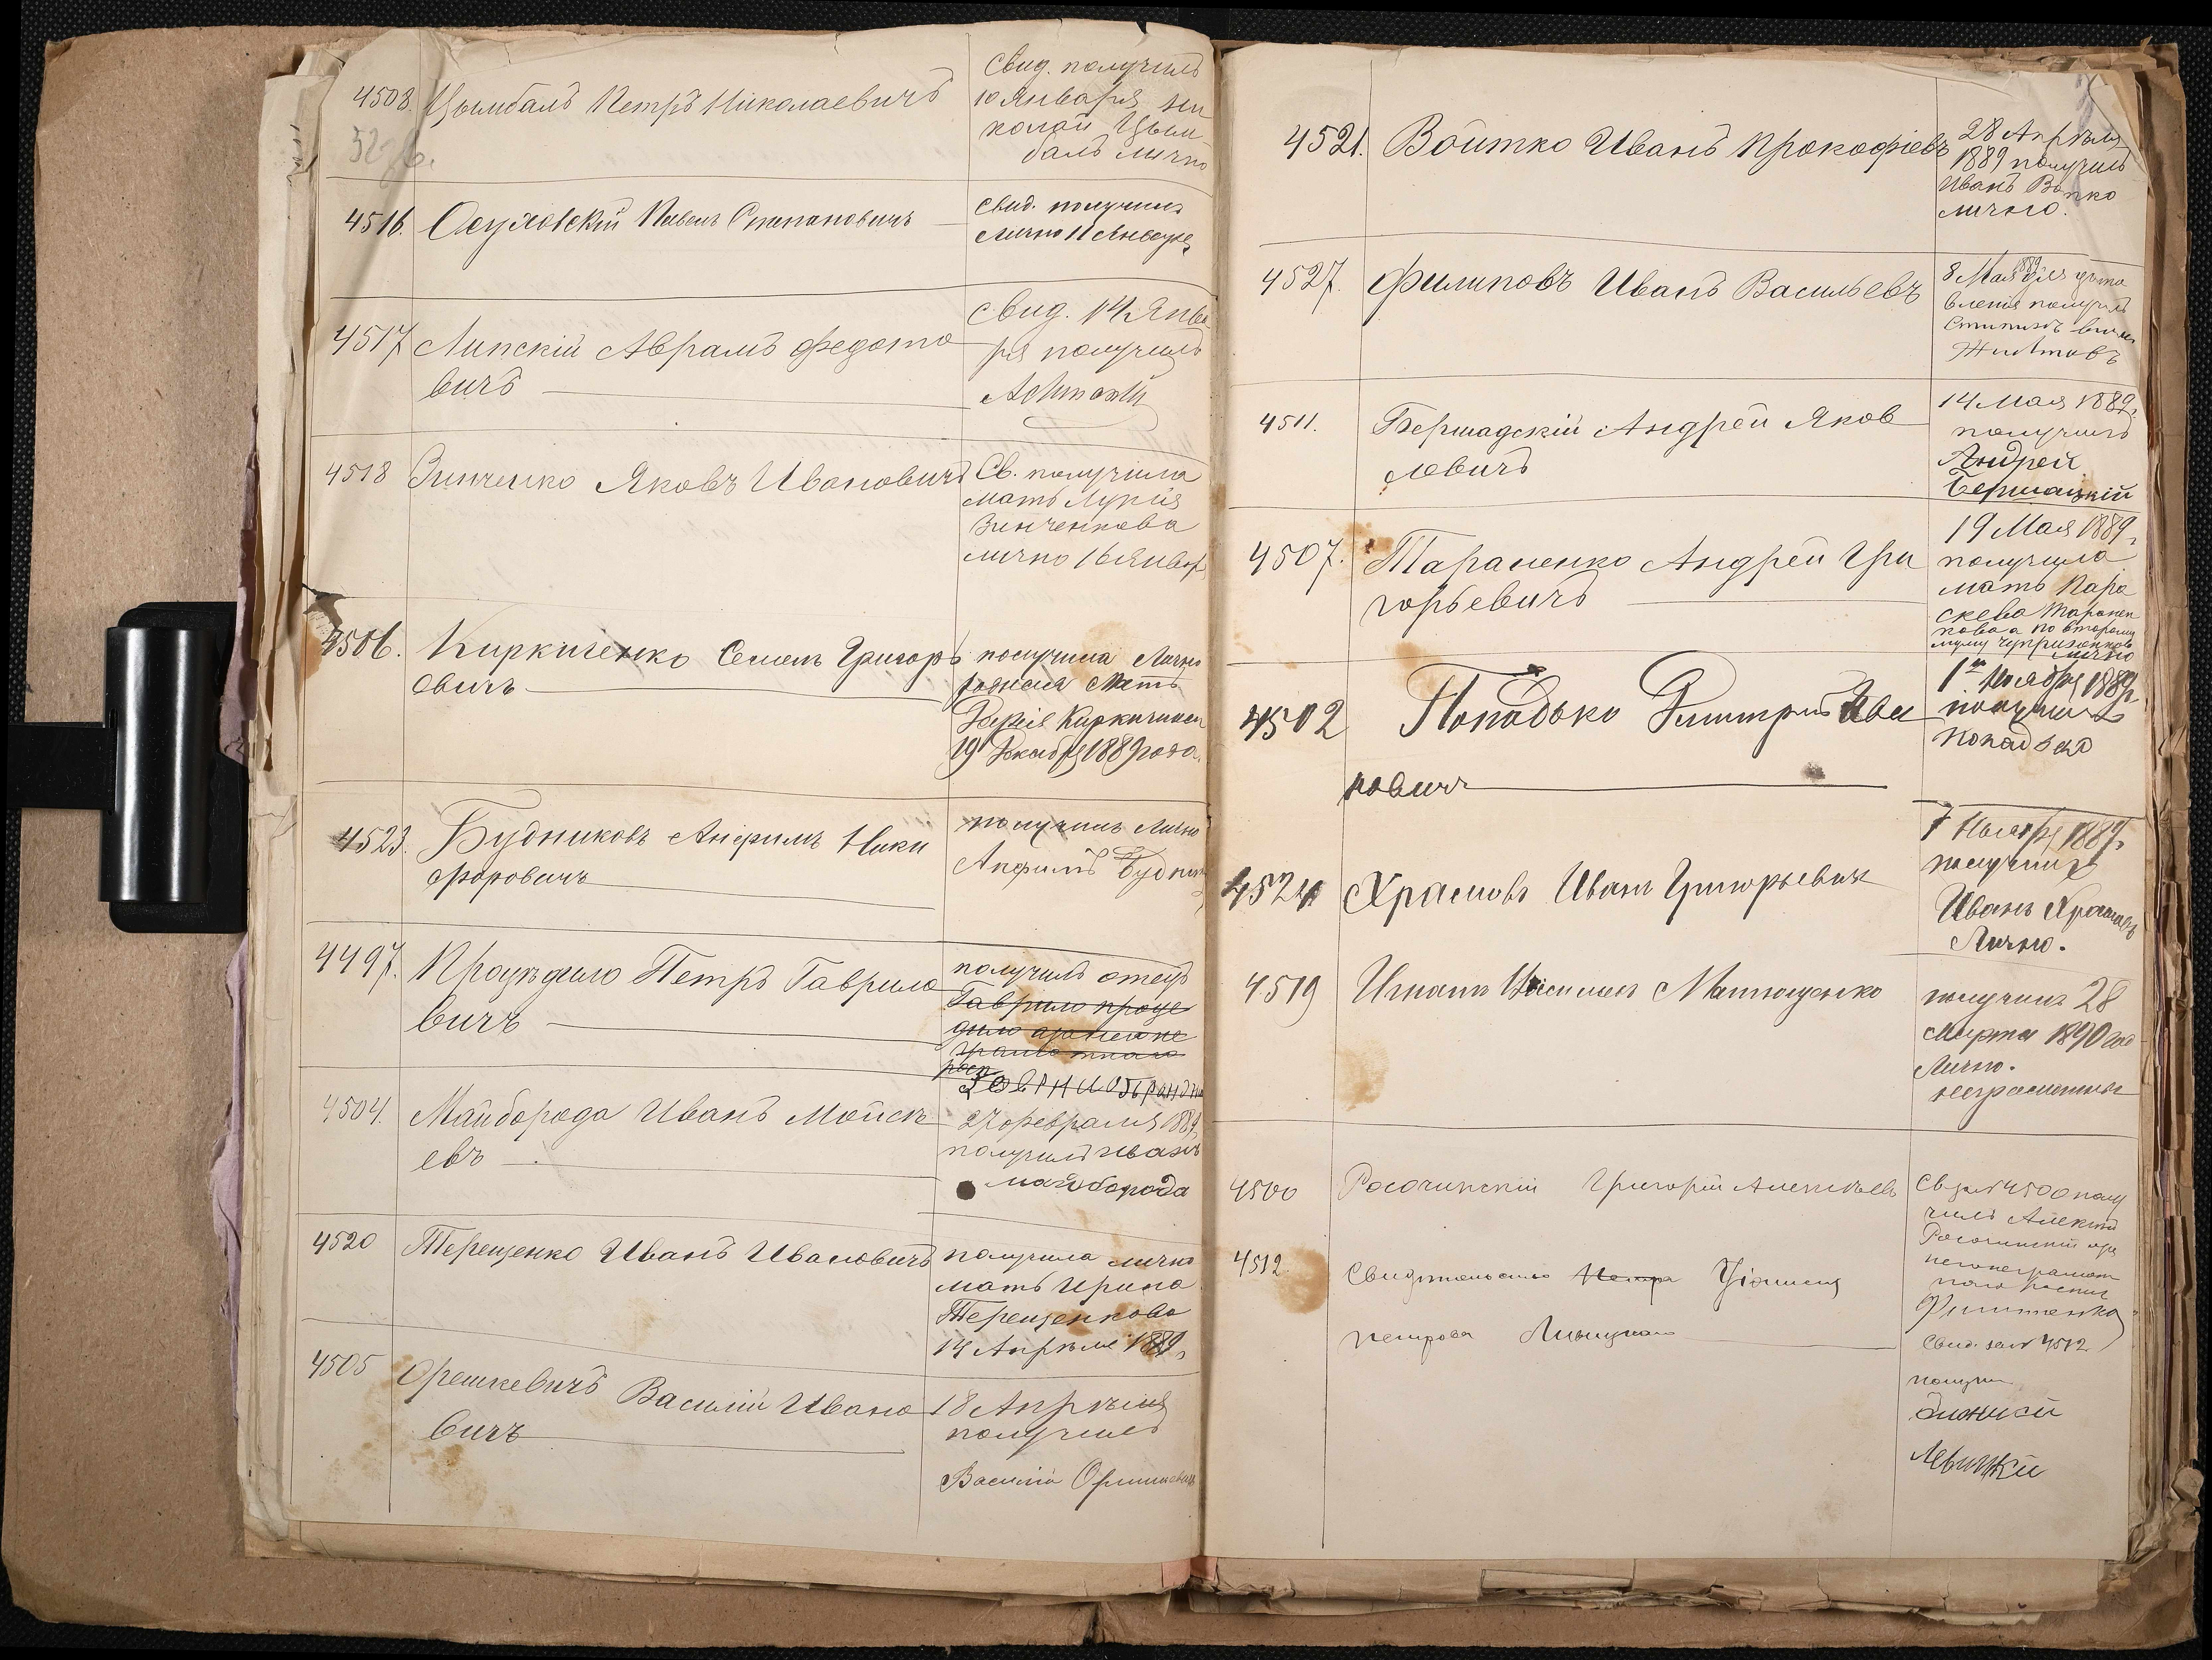 4508. Цымбалъ Петръ Николаевичъ
Свид. получилъ
10 Января Ни
колай Цым
балъ лично
4516. Павелъ Степановичъ
Свид. получилъ
лично 11 Января
4517 Липскій Аврамъ Федото
вичъ
Свид. 14 Янва
ря получилъ
4518 Зинченко Яковъ Ивановичъ
Св. получила
мать Лукія
Зинченкова
лично 16 Январ
4506. Киркиченко Семенъ Григорь
евичъ
получила Лично
мать
19 Декабря 1889 года.
4523. Будниковъ Анфимъ Ники
форовичъ
получилъ Лично
Анфимъ Будник
4497. Процѣдило Петръ Гаврило
вичъ
получилъ отецъ
Гаврило проце
дило
4504. Майборода Иванъ Мойсѣ
евъ
27 февраля 1889
получилъ иванъ
майборода
4520 Терещенко Иванъ Ивановичъ
получила лично
мать Ирина
Терещенкова
14 Апрѣля 1889
4505 Орешкевичъ Василій Ивано
вичъ
18 Апрѣля
получилъ
Василій Орешкевичъ
4521. Войтко Иванъ Прокофіевъ
28 Апрѣля
1889 получилъ
Иванъ
лично.
4527. Филиповъ Иванъ Васильевъ
8 Мая 1889 для доста
вленія получилъ
4511. Бершадскій Андрей Яков
левичъ
14 Мая 1889
получилъ
Андрей
Бершацкій
4507. Тараненко Андрей Гри
горьевичъ
19 Мая 1889
получила
мать Пара
скева Таранен
кова а по второму
мужу
лично
4502 Попадько Дмитрий Ива
новичъ
1го Ноября 1889
получилъ
попадько
4524 Храмовъ Иванъ Григорьевич
7 Ноября 1889
получилъ
Иванъ Храмовъ
Лично.
4519 Игнатъ Матющенко
получилъ 28
Марта 1890 год
Лично.
неграмотный
4500 Росочинскій Григорій Алексѣевъ
Св. за № 4500 полу
чилъ Алексѣй
Росочинскій
4512. Свидѣтельство Петра
петрова
Свид. за № 4512
получи